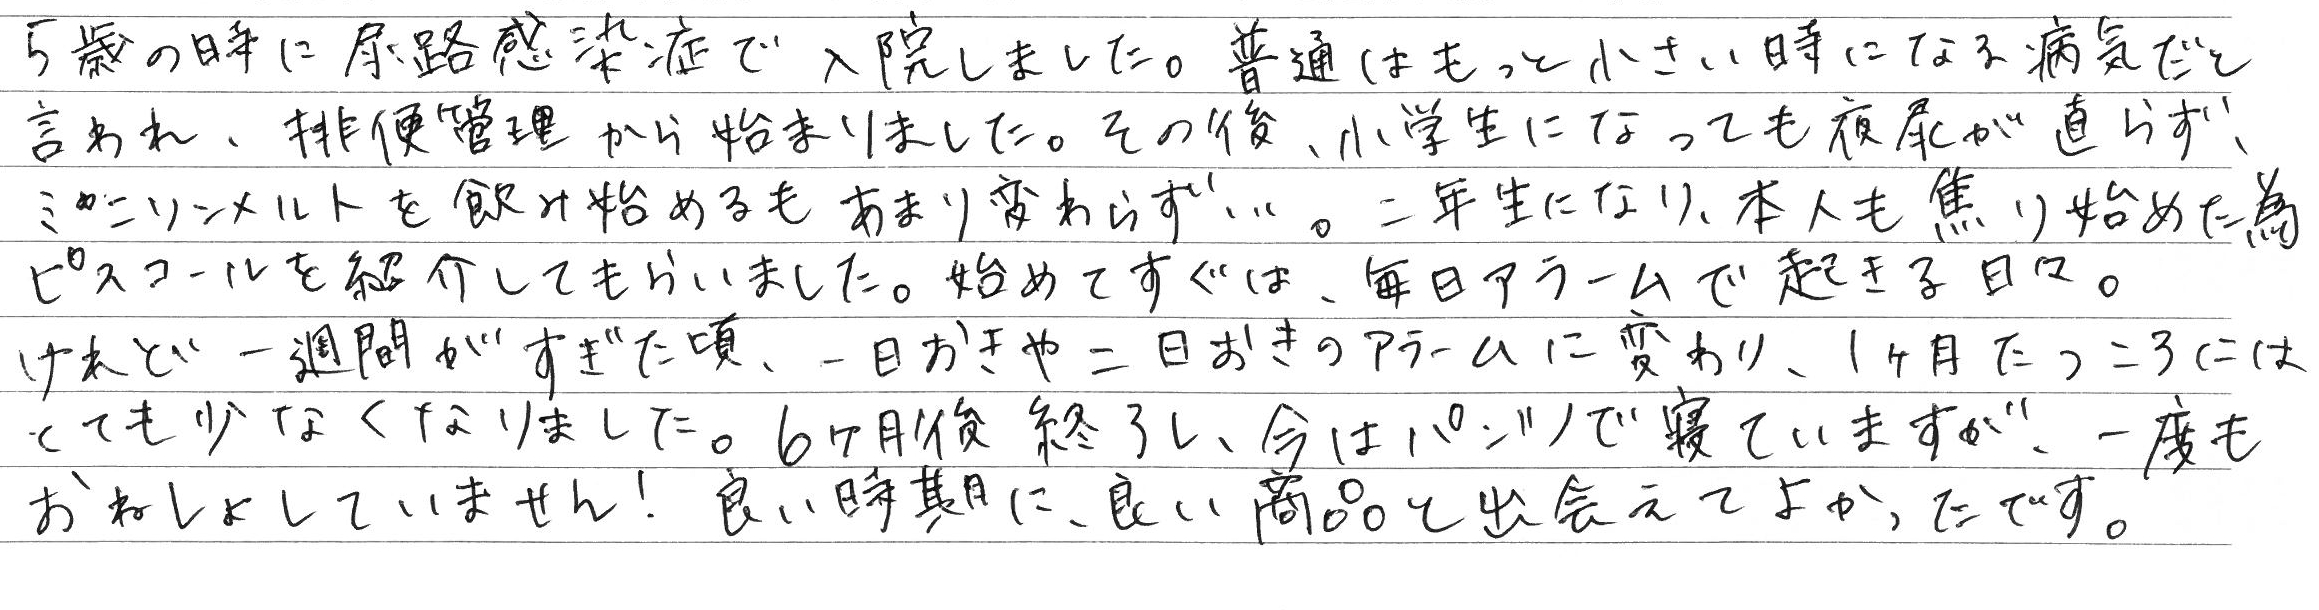 5歳の時に尿路感染症で入院しました。普通はもっと小さい時になる病気だと
言われ、排便管理から始まりました。その後、小学生になっても夜尿が直らず、
ミニリンメルトを飲み始めるもあまり変わらず…。二年生になり、本人も焦り始めた為
ピスコールを紹介してもらいました。始めてすぐは、毎日アラームで起きる日々。
けれど一週間がすぎた頃、一日おきや二日おきのアラームに変わり、1ヶ月たつころには
とても少なくなりました。6ヶ月後終了し、今はパンツで寝ていますが、一度も
おねしょしていません!良い時期に、良い商品と出会えてよかったです。